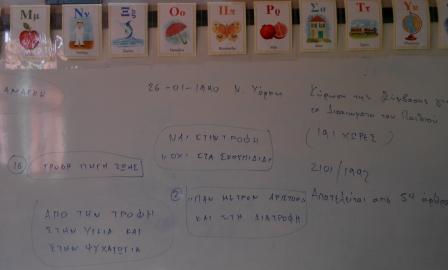 Μμ Νν Ξξ Οο Ππ Ρρ Σσ Ττ Υυ
26-01-1990 Ν. Υόρκη
της Σύμβασης για
τα Δικαιώματα του Παιδιού
(191 ΧΩΡΕΣ)
ΝΑΙ ΣΤΗΝ ΤΡΟΦΗ
ΟΧΙ ΣΤΑ ΣΚΟΥΠΙΔΙΑ
16 ΤΡΟΦΗ ΠΗΓΗ ΖΩΗΣ
2101/1992
Αποτελείται από 54 άρθρα
2 "ΠΑΝ ΜΕΤΡΟΝ ΑΡΙΣΤΟΝ"
ΚΑΙ ΣΤΗ ΔΙΑΤΡΟΦΗ
ΑΠΟ ΤΗΝ ΤΡΟΦΗ
ΣΤΗΝ ΥΓΕΙΑ ΚΑΙ
ΣΤΗΝ ΨΥΧΑΓΩΓΙΑ